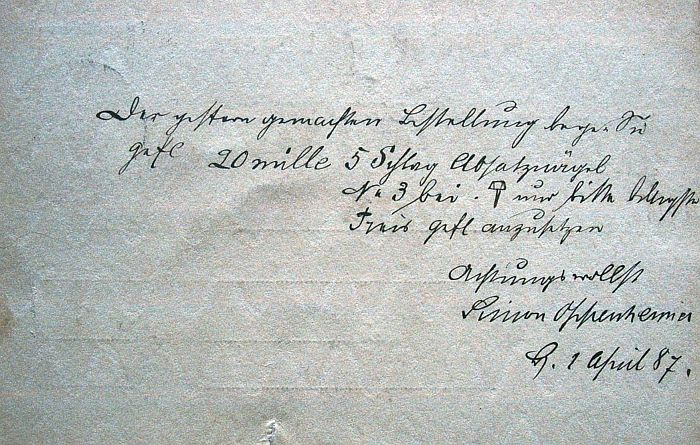 Der gestern gemachten Bestellung beige. Sie
gefl 20 mille 5 Schlag Absatznägel
No 3 bei. nur bitte billigste
Preis gefl anzusetzen
Achtungsvollst
Simon Oppenheimer
2 April 87.